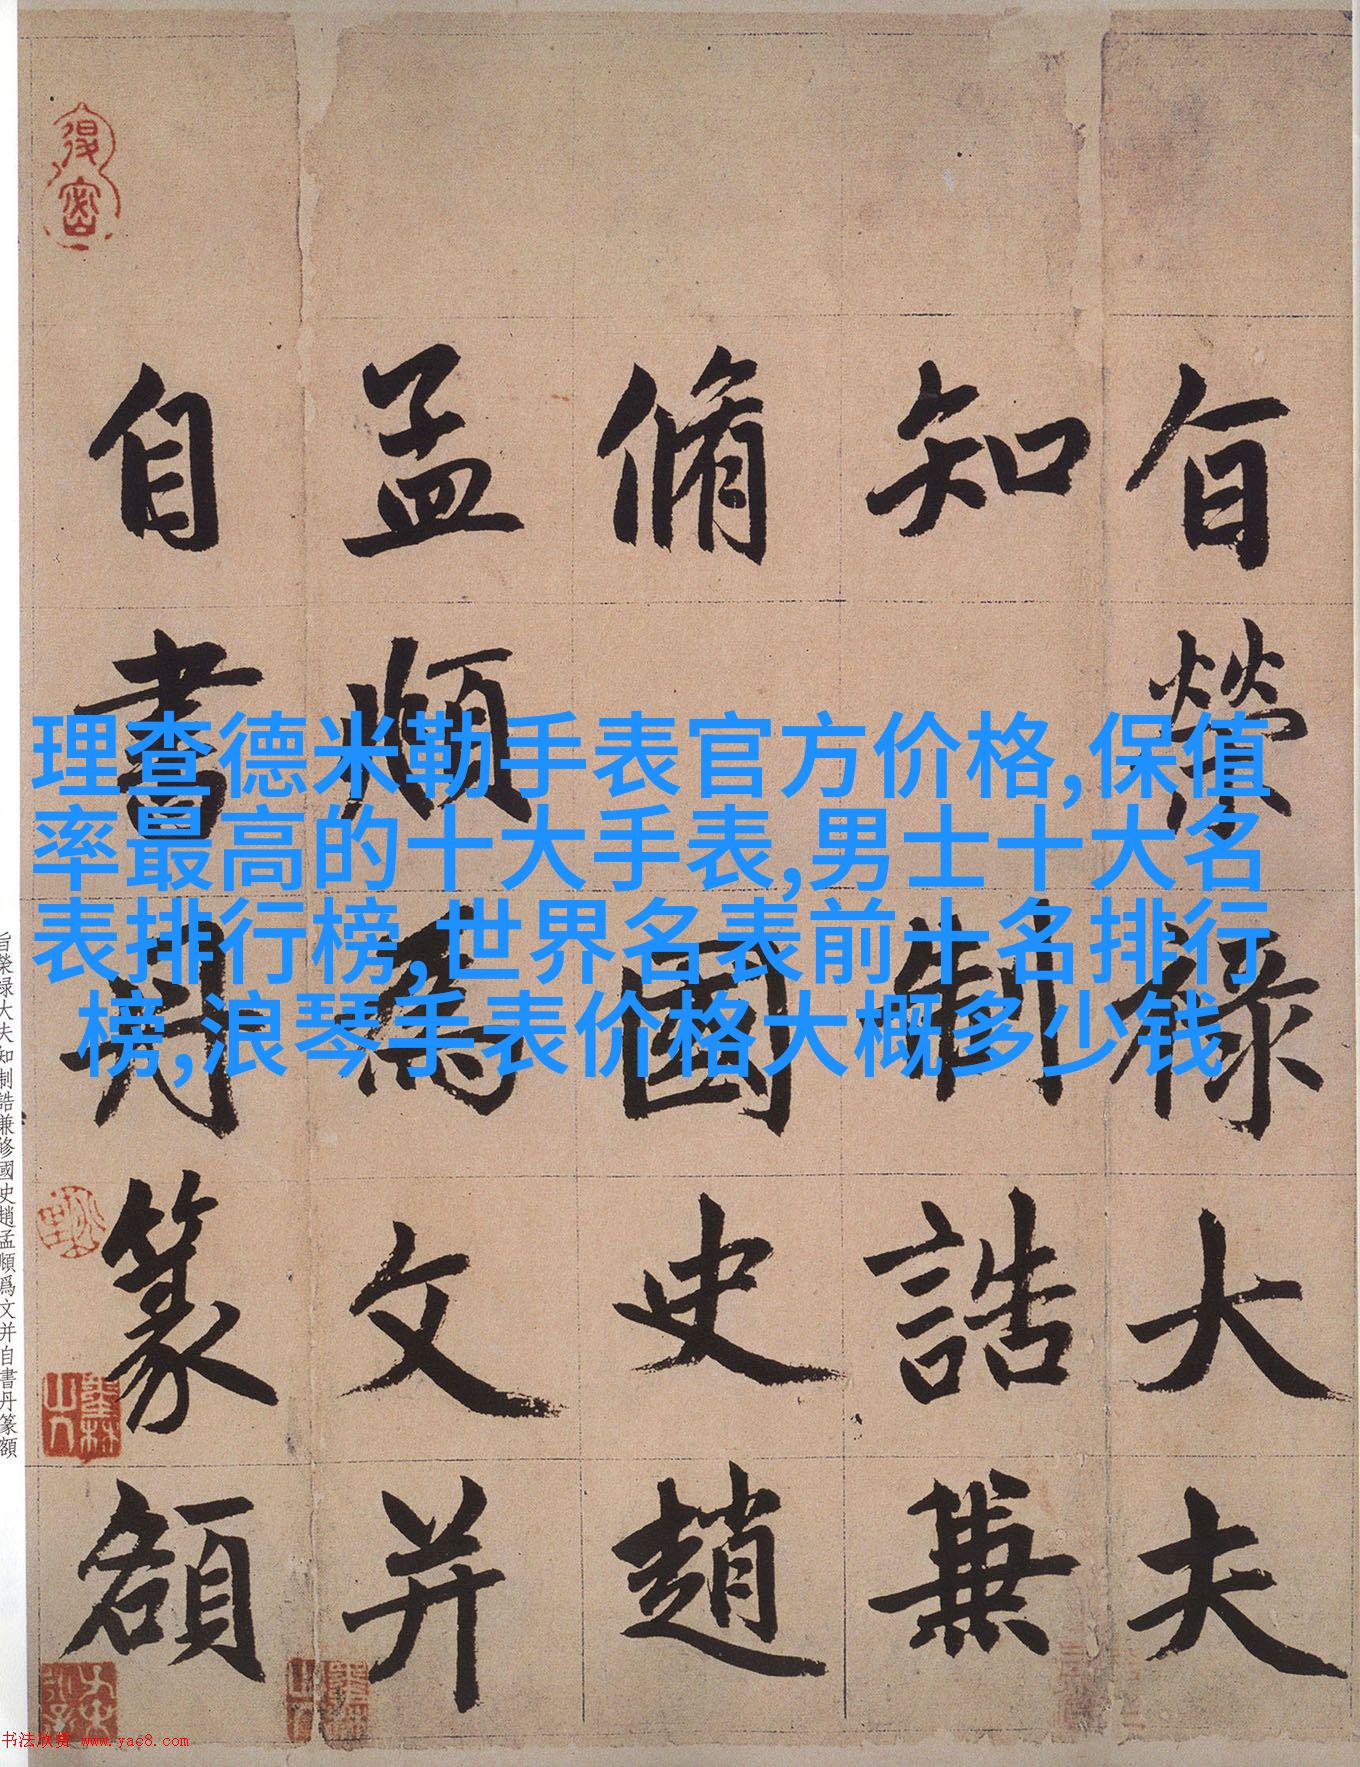 旨榮祿大夫
知制誥兼
脩國史趙
孟頫為文并
自書丹篆額
理查德米勒手表官方价格,保值
率最高的十大手表,男士十大名
表排行榜,世界名表前十名排行
榜,浪琴手表价格大概多少钱
旨榮祿大夫知制誥兼修國史趙孟頫爲文并自書丹篆額
书法欣赏 www.yac8.com